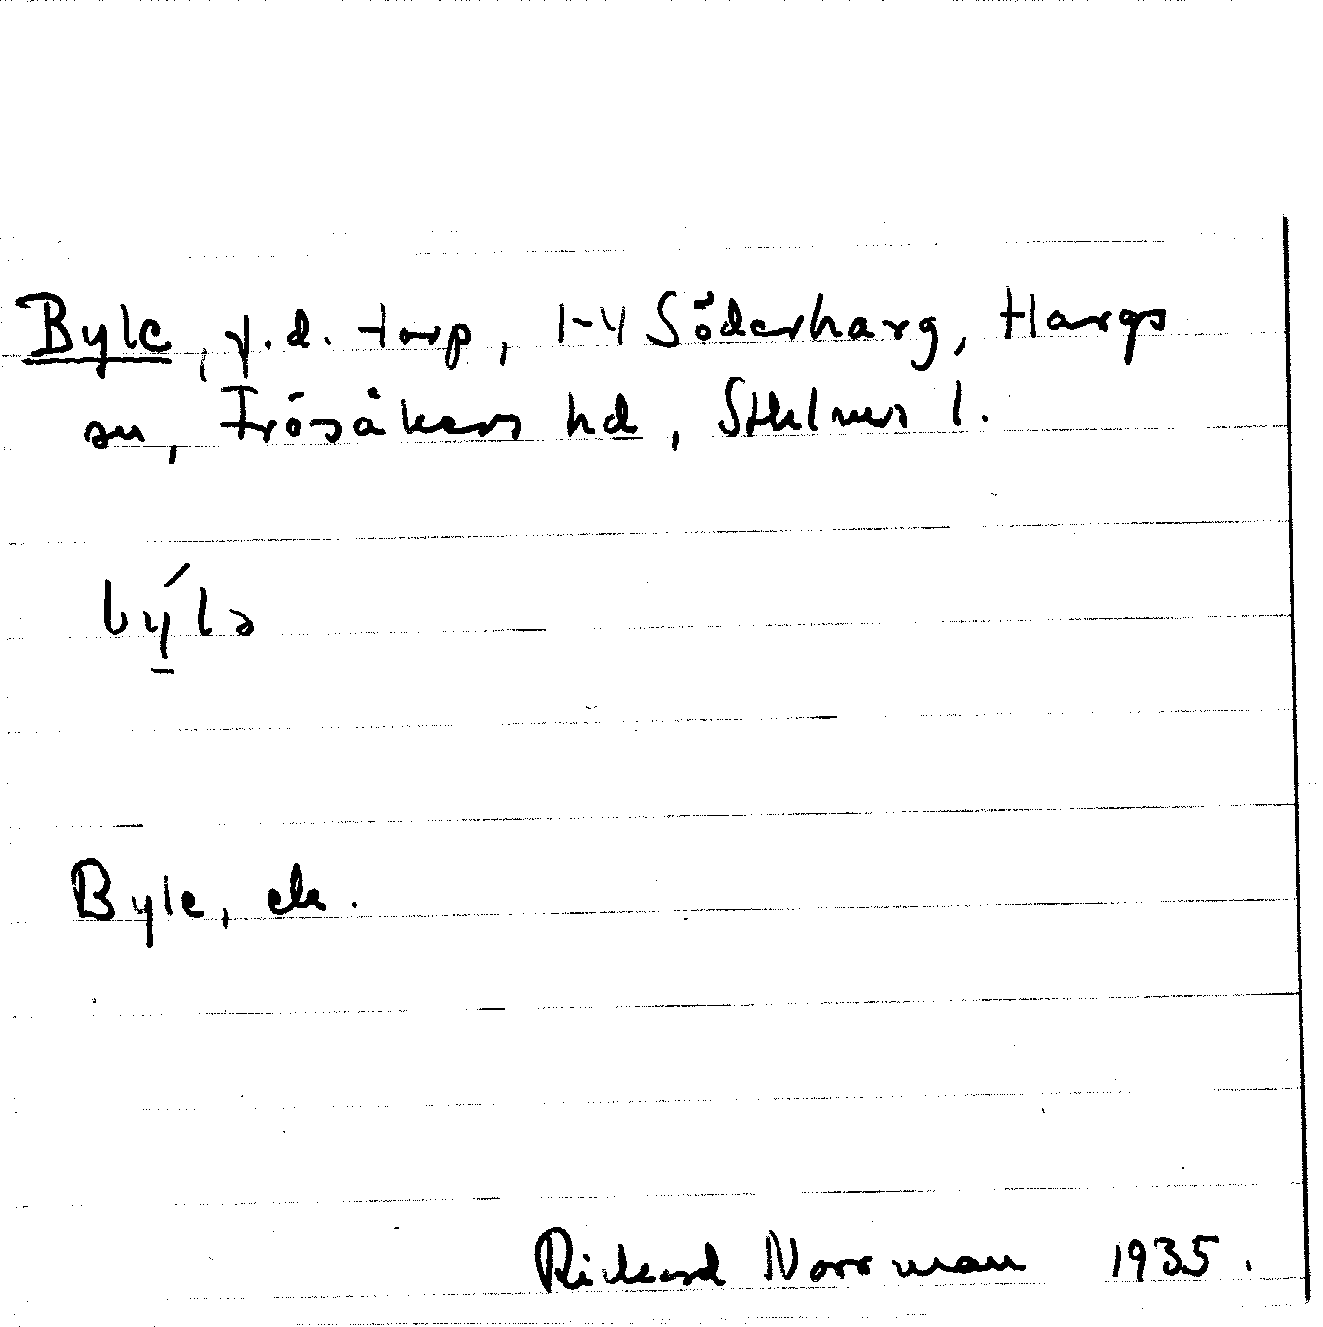 Byle, f.d. torp, 1-4 Söderharg, Hargs
sn, Frösåkers hd, Sthlms l.
bý̱lə
Byle, ek.
Rickard Norrman 1935.